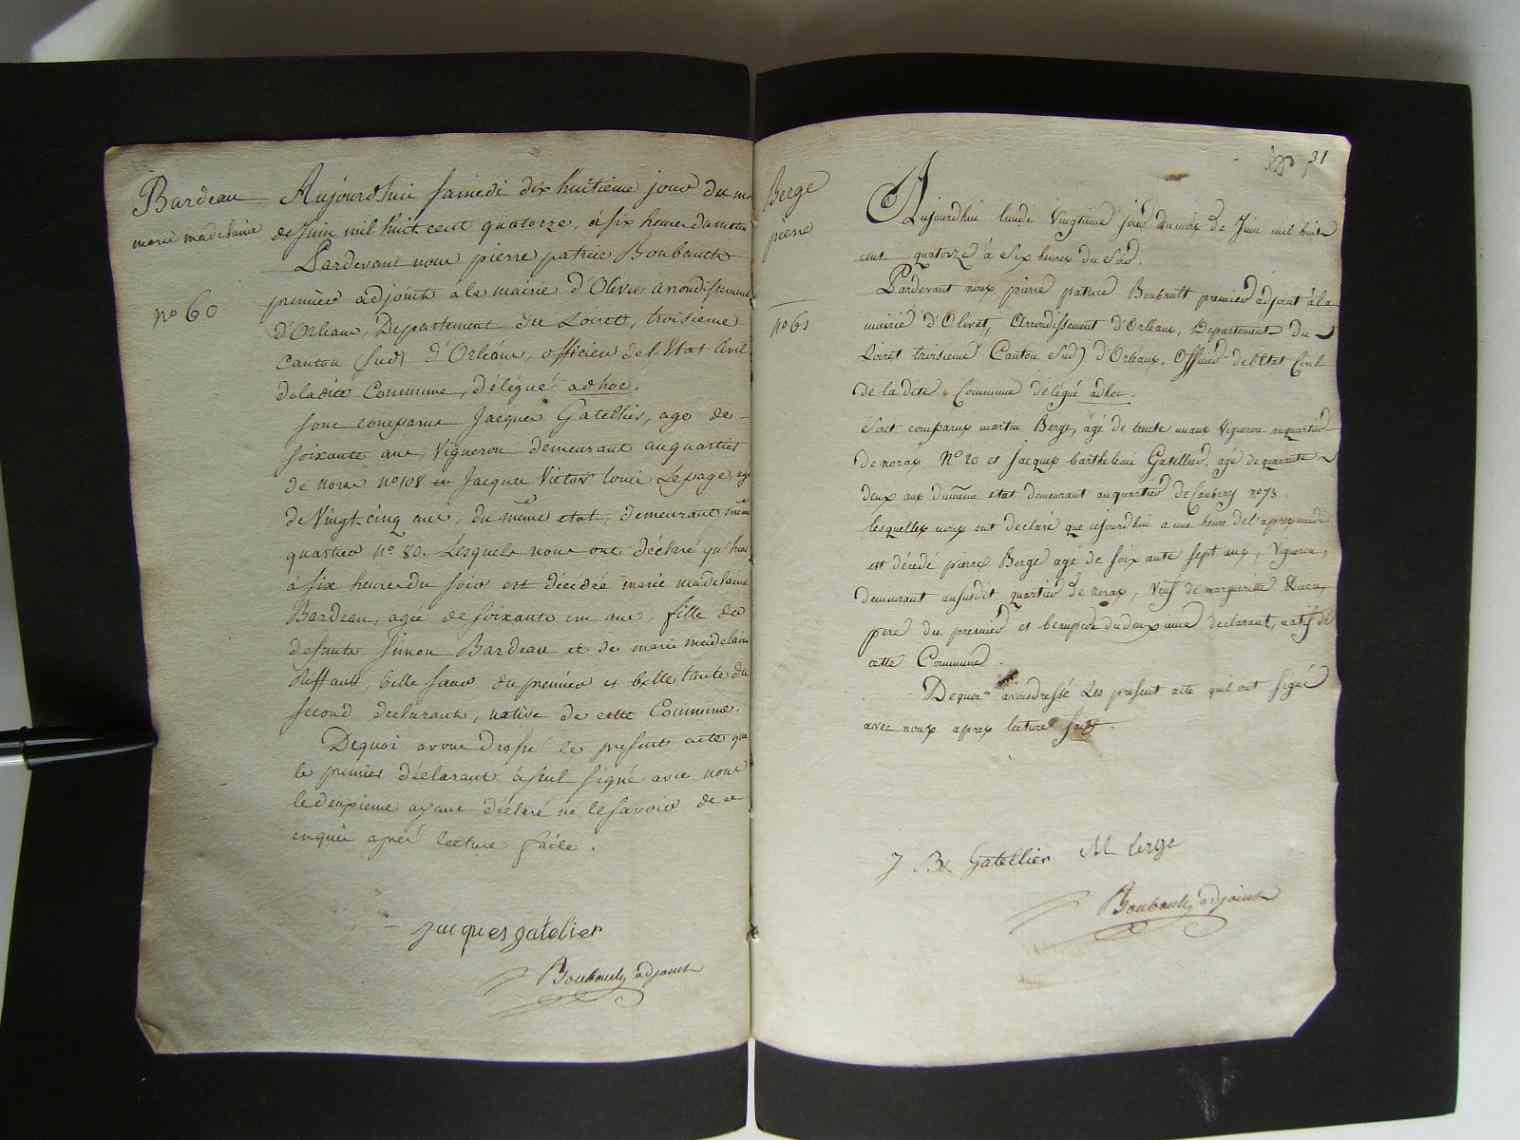 Bardeau
marie madelaine
no 60
Aujourd'hui samedi dix huitieme jour du m
de Juin mil huit cent quatorze, à six heures du matin
Pardevant nous pierre patrice Boubault
premier adjoint à la mairie d'Olivet arrondissement
D'Orléans, Departement du Loiret, troisieme
Canton (sud) d'Orléans, officier de l'Etat Civil
de ladite Commune, délégué ad hoc.
sont comparus Jacques Gatellier, agé de
soixante ans, Vigneron demeurant au quartier
de noras no 108 et Jacques Victor Louis Lepage, agé
de Vingt-cinq ans, du même etat, demeurant même
quartier no 80. Lesquels nous ont déclaré qu'hier
à six heures du soir est décédée marie madelaine
Bardeau, agée de soixante un ans, fille de
defunts Simon Bardeau et de marie madelaine
Riffault, belle soeur du premier et belle tante du
second declarant, native de cette Commune.
Dequoi avons dressé le present acte que
le premier déclarant a seul signé avec nous
le deuxieme ayant déclaré ne le savoir de ce
enquis après lecture faite.
Jacques gatelier
Boubault adjoint
21
Berge
pierre
no 61
Aujourdhui lundi Vingtieme jour du mois de Juin mil huit
cent quatorze à Six heures du Soir.
Pardevant nous pierre patrice Boubault premier adjoint à la
mairie d'Olivet, Arrondissement d'Orléans, Departement du
Loiret troisieme Canton (sud) d'Orléans, Officier de l'Etat Civil
de la dite Commune délégué ad hoc.
Sont comparus martin Berge, agé de trente un ans Vigneron au quartier
de noras No 20 et Jacques barthelemi Gatellier, agé de quarante
deux ans du même etat demeurant au quartier de no 73
lesquelles nous ont declaré que cejourdhui a une heure de l'apres midi
est décédé pierre Berge agé de soixante sept ans, Vigneron,
demeurant aususdit quartier de noras, Veuf de margueritte
pere du premier et beaupere du deuxieme declarant, natif de
cette Commune.
Dequoi avons dressé Les present acte qu'il ont signé
avec nous apres lecture faitte.
J B Gatellier M berge
Boubault adjoint